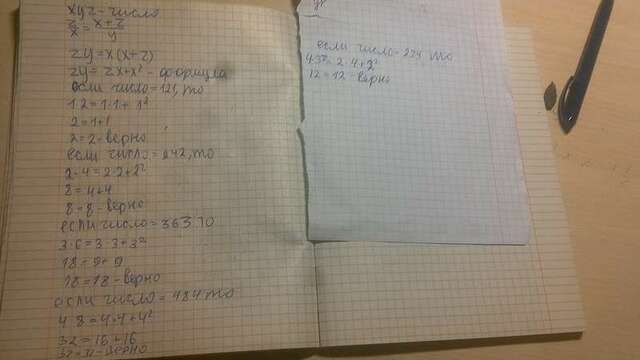 xyz - число
z/x = x+z/y
zy = x(x+z)
zy = zx + x² - формула
если число = 121, то
1·2 = 1·1 + 1²
2 = 1+1
2 = 2 - верно
если число = 242, то
2·4 = 2·2 + 2²
8 = 4+4
8 = 8 - верно
если число = 363 то
3·6 = 3·3 + 3²
18 = 9 + 9
18 = 18 - верно
если число = 484 то
4·8 = 4·4 + 4²
32 = 16 + 16
32 = 32 - верно
если число = 234 то
4·3 = 2·4 + 2²
12 = 12 - верно